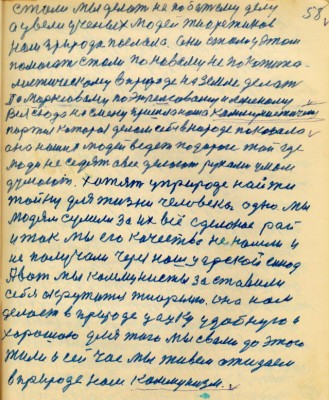 58
стали мы делат не по батскому делу
а увели ученых людей теоретиков
нам природа послала. Они нам у этом
помогать стали по новому не по капита-
листическому в природе на земле делат
По Марксовому по Энгельсовому по Ленскому
Вся сюда на смену пришла наша Коммунистичну
партия которая делом себя в народе показала
она наших людей ведет по дороге той где
люди не сидят а все делают руками умом
думают. Хотят у природе найти
тайну для жизни человека одно мы
людям сумели за их всё сделаное рай
и так мы его качества не нашли и
не получали через наш царской синод
А вот мы коммунисты заставили
себя окружит теориею. она нам
делает в природе науку удобную и
хорошою для того мы с вами до этого
жили и сей час мы живем ожидаем
в природе нам коммунизм.